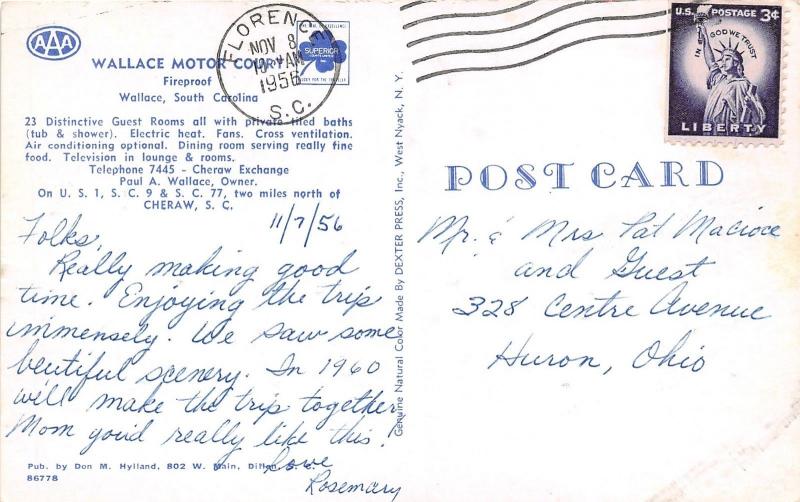 AAA
WALLACE MOTOR COURT
Fireproof
Wallace, South Carolina
23 Distinctive Guest Rooms all with private tiled baths
(tub & shower). Electric heat. Fans. Cross ventilation.
Air conditioning optional. Dining room serving really fine
food. Television in lounge & rooms.
Telephone 7445 - Cheraw Exchange
Paul A. Wallace, Owner.
On U. S. 1, S. C. 9 & S. C. 77, two miles north of
CHERAW, S. C.
SUPERIOR
FLORENCE
NOV 8
AM
1956
S. C.
11/7/56
Folks,
Really making good
time. Enjoying the trip
immensely. We saw some
beutiful scenery. In 1960
we'll make the trip together
Mom you'd really like this!
Love
Rosemary
Pub. by Don M. Hylland, 802 W. Main, Dillon, S. C.
86778
Genuine Natural Color Made By DEXTER PRESS, Inc., West Nyack, N. Y.
U.S. POSTAGE 3¢
IN GOD WE TRUST
LIBERTY
POST CARD
Mr. & Mrs Pat Macioce
and Guest
328 Centre Avenue
Huron, Ohio